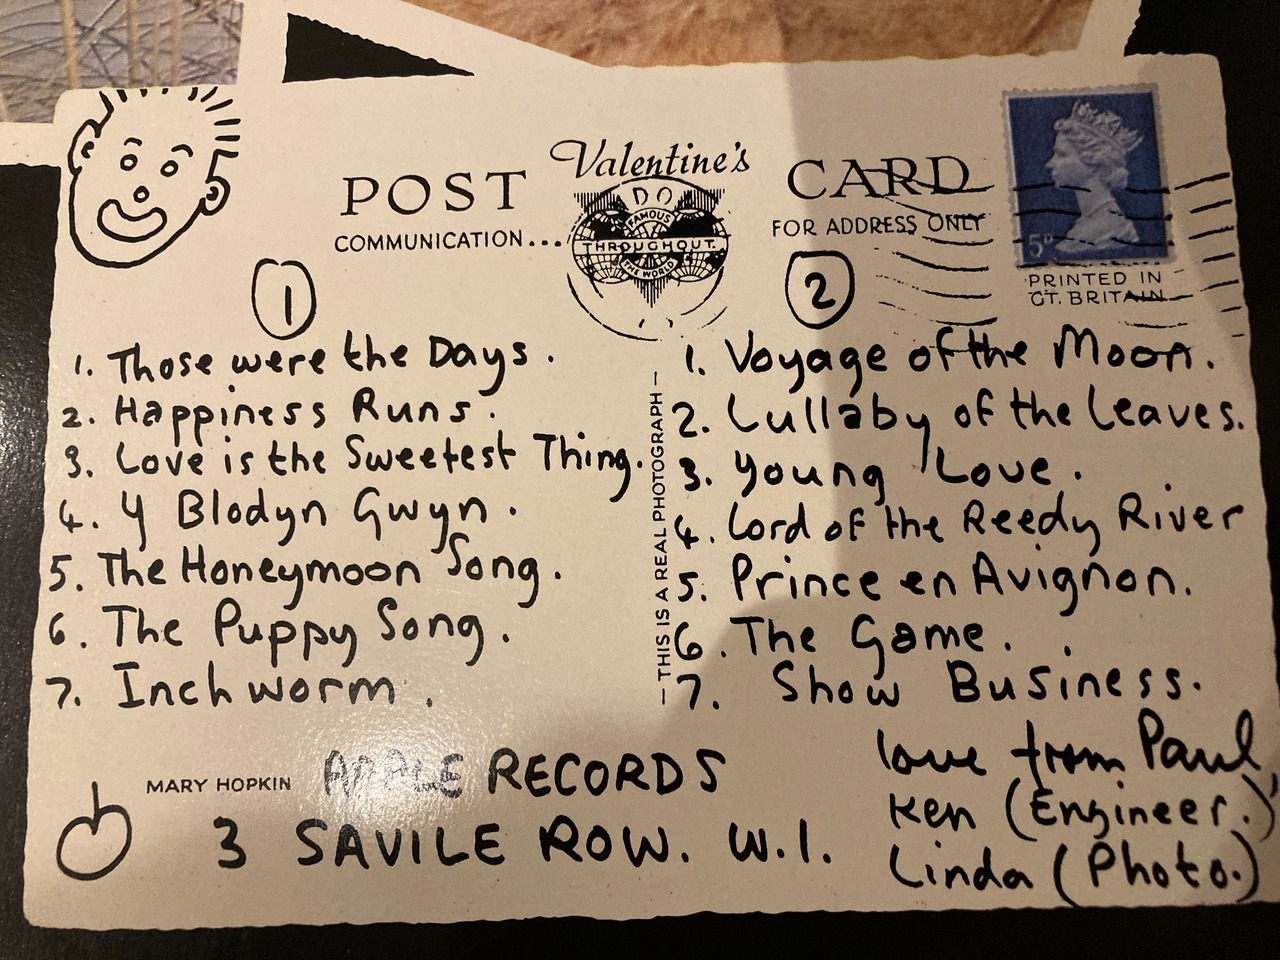 Valentine's
POST CARD
DO
FAMOUS
THROUGHOUT
THE WORLD
COMMUNICATION....
FOR ADDRESS ONLY
5D
PRINTED IN
GT. BRITAIN
1
1. Those were the Days.
2. Happiness Runs.
3. Love is the Sweetest Thing.
4. Y Blodyn Gwyn.
5. The Honeymoon Song.
6. The Puppy Song.
7. Inchworm.
— THIS IS A REAL PHOTOGRAPH —
2
1. Voyage of the Moon.
2. Lullaby of the Leaves.
3. Young Love.
4. Lord of the Reedy River
5. Prince en Avignon.
6. The Game.
7. Show Business.
MARY HOPKIN APPLE RECORDS
3 SAVILE ROW. W.1.
love from Paul,
Ken (Engineer.)
Linda (Photo.)